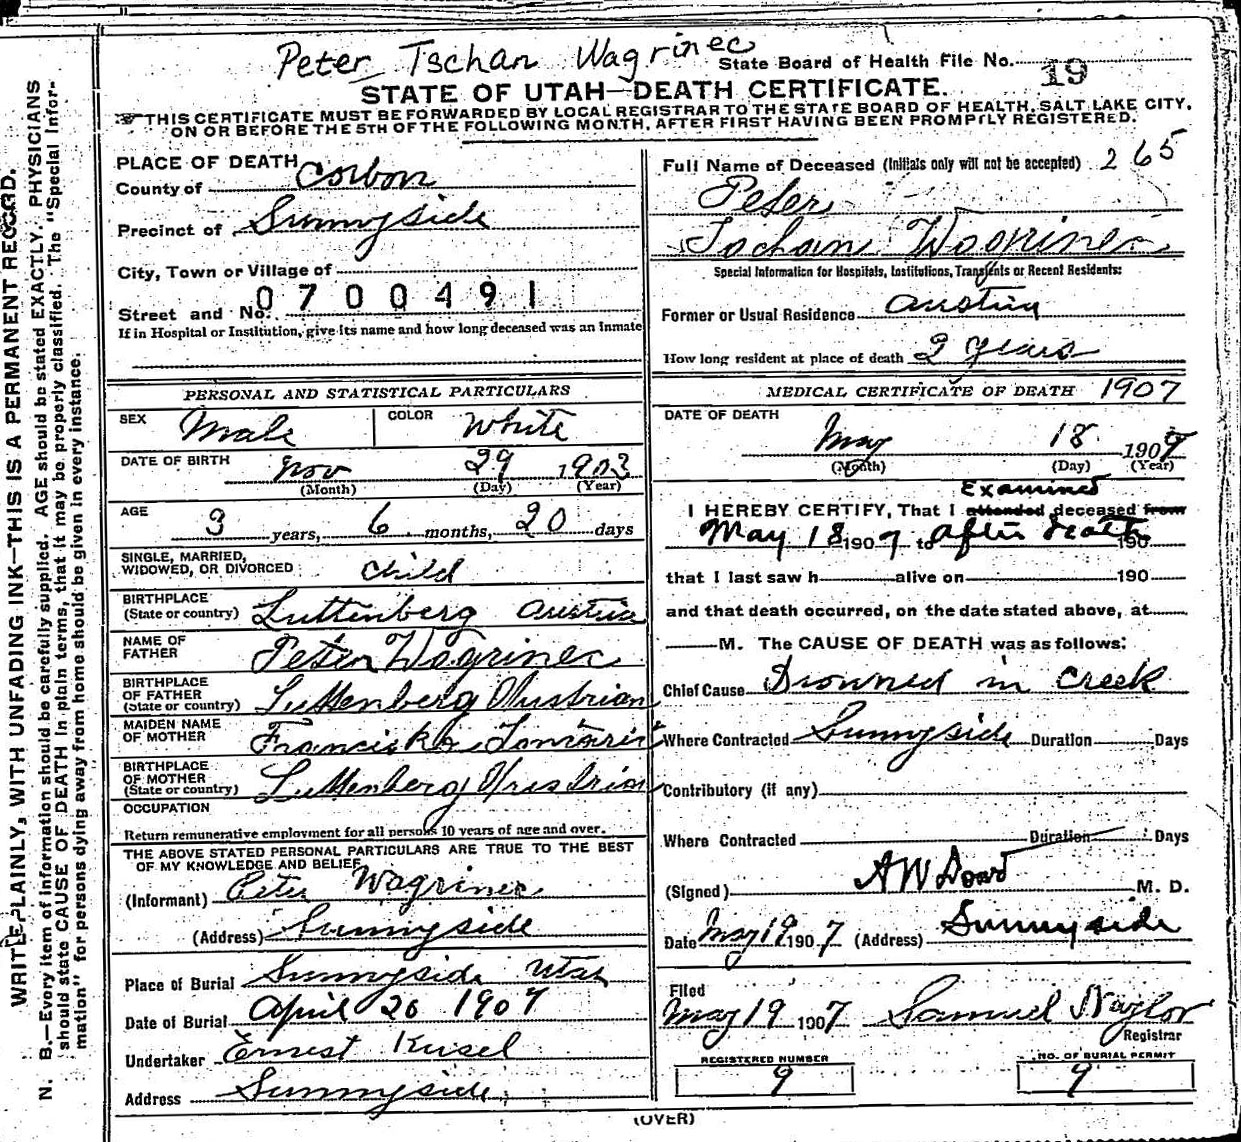 Peter Tschan Wagrinec
State Board of Health File No. 19
STATE OF UTAH—DEATH CERTIFICATE.
THIS CERTIFICATE MUST BE FORWARDED BY LOCAL REGISTRAR TO THE STATE BOARD OF HEALTH, SALT LAKE CITY,
ON OR BEFORE THE 5TH OF THE FOLLOWING MONTH, AFTER FIRST HAVING BEEN PROMPTLY REGISTERED.
PLACE OF DEATH
County of Carbon
Precinct of Sunnyside
City, Town or Village of
0700491
Street and No.
If in Hospital or Institution, give its name and how long deceased was an Inmate
Full Name of Deceased (Initials only will not be accepted) 265
Peter
Tschan Wagrinec
Special Information for Hospitals, Institutions, Transients or Recent Residents:
Former or Usual Residence Austria
How long resident at place of death 2 years
PERSONAL AND STATISTICAL PARTICULARS
SEX Male COLOR White
DATE OF BIRTH Nov 29 1903
(Month) (Day) (Year)
AGE 3 years, 6 months, 20 days
SINGLE, MARRIED,
WIDOWED, OR DIVORCED child
BIRTHPLACE
(State or country) Luttenberg Austria
NAME OF
FATHER Peter Wagrinec
BIRTHPLACE
OF FATHER
(State or country) Luttenberg Austrian
MAIDEN NAME
OF MOTHER Franciska
BIRTHPLACE
OF MOTHER
(State or country) Luttenberg Austrian
OCCUPATION
Return remunerative employment for all persons 10 years of age and over.
THE ABOVE STATED PERSONAL PARTICULARS ARE TRUE TO THE BEST
OF MY KNOWLEDGE AND BELIEF
(Informant) Peter Wagrinec
(Address) Sunnyside
Place of Burial Sunnyside Utah
Date of Burial April 20 1907
Undertaker Ernest Kusel
Address Sunnyside
MEDICAL CERTIFICATE OF DEATH 1907
DATE OF DEATH
May 18 1907
(Month) (Day) (Year)
Examined
I HEREBY CERTIFY, That I attended deceased from
May 18 1907 to after death 190
that I last saw h alive on 190
and that death occurred, on the date stated above, at
M. The CAUSE OF DEATH was as follows:
Chief Cause Drowned in creek
Where Contracted Sunnyside Duration Days
Contributory (if any)
Where Contracted Duration Days
(Signed) A W Dowd M. D.
Date May 19 1907 (Address) Sunnyside
Filed
May 19 1907 Samuel Naylor
Registrar
REGISTERED NUMBER
9
NO. OF BURIAL PERMIT
9
(OVER)
WRITE PLAINLY, WITH UNFADING INK—THIS IS A PERMANENT RECORD.
N. B.—Every item of information should be carefully supplied. AGE should be stated EXACTLY. PHYSICIANS
should state CAUSE OF DEATH in plain terms, that it may be properly classified. The "Special Infor-
mation" for persons dying away from home should be given in every instance.